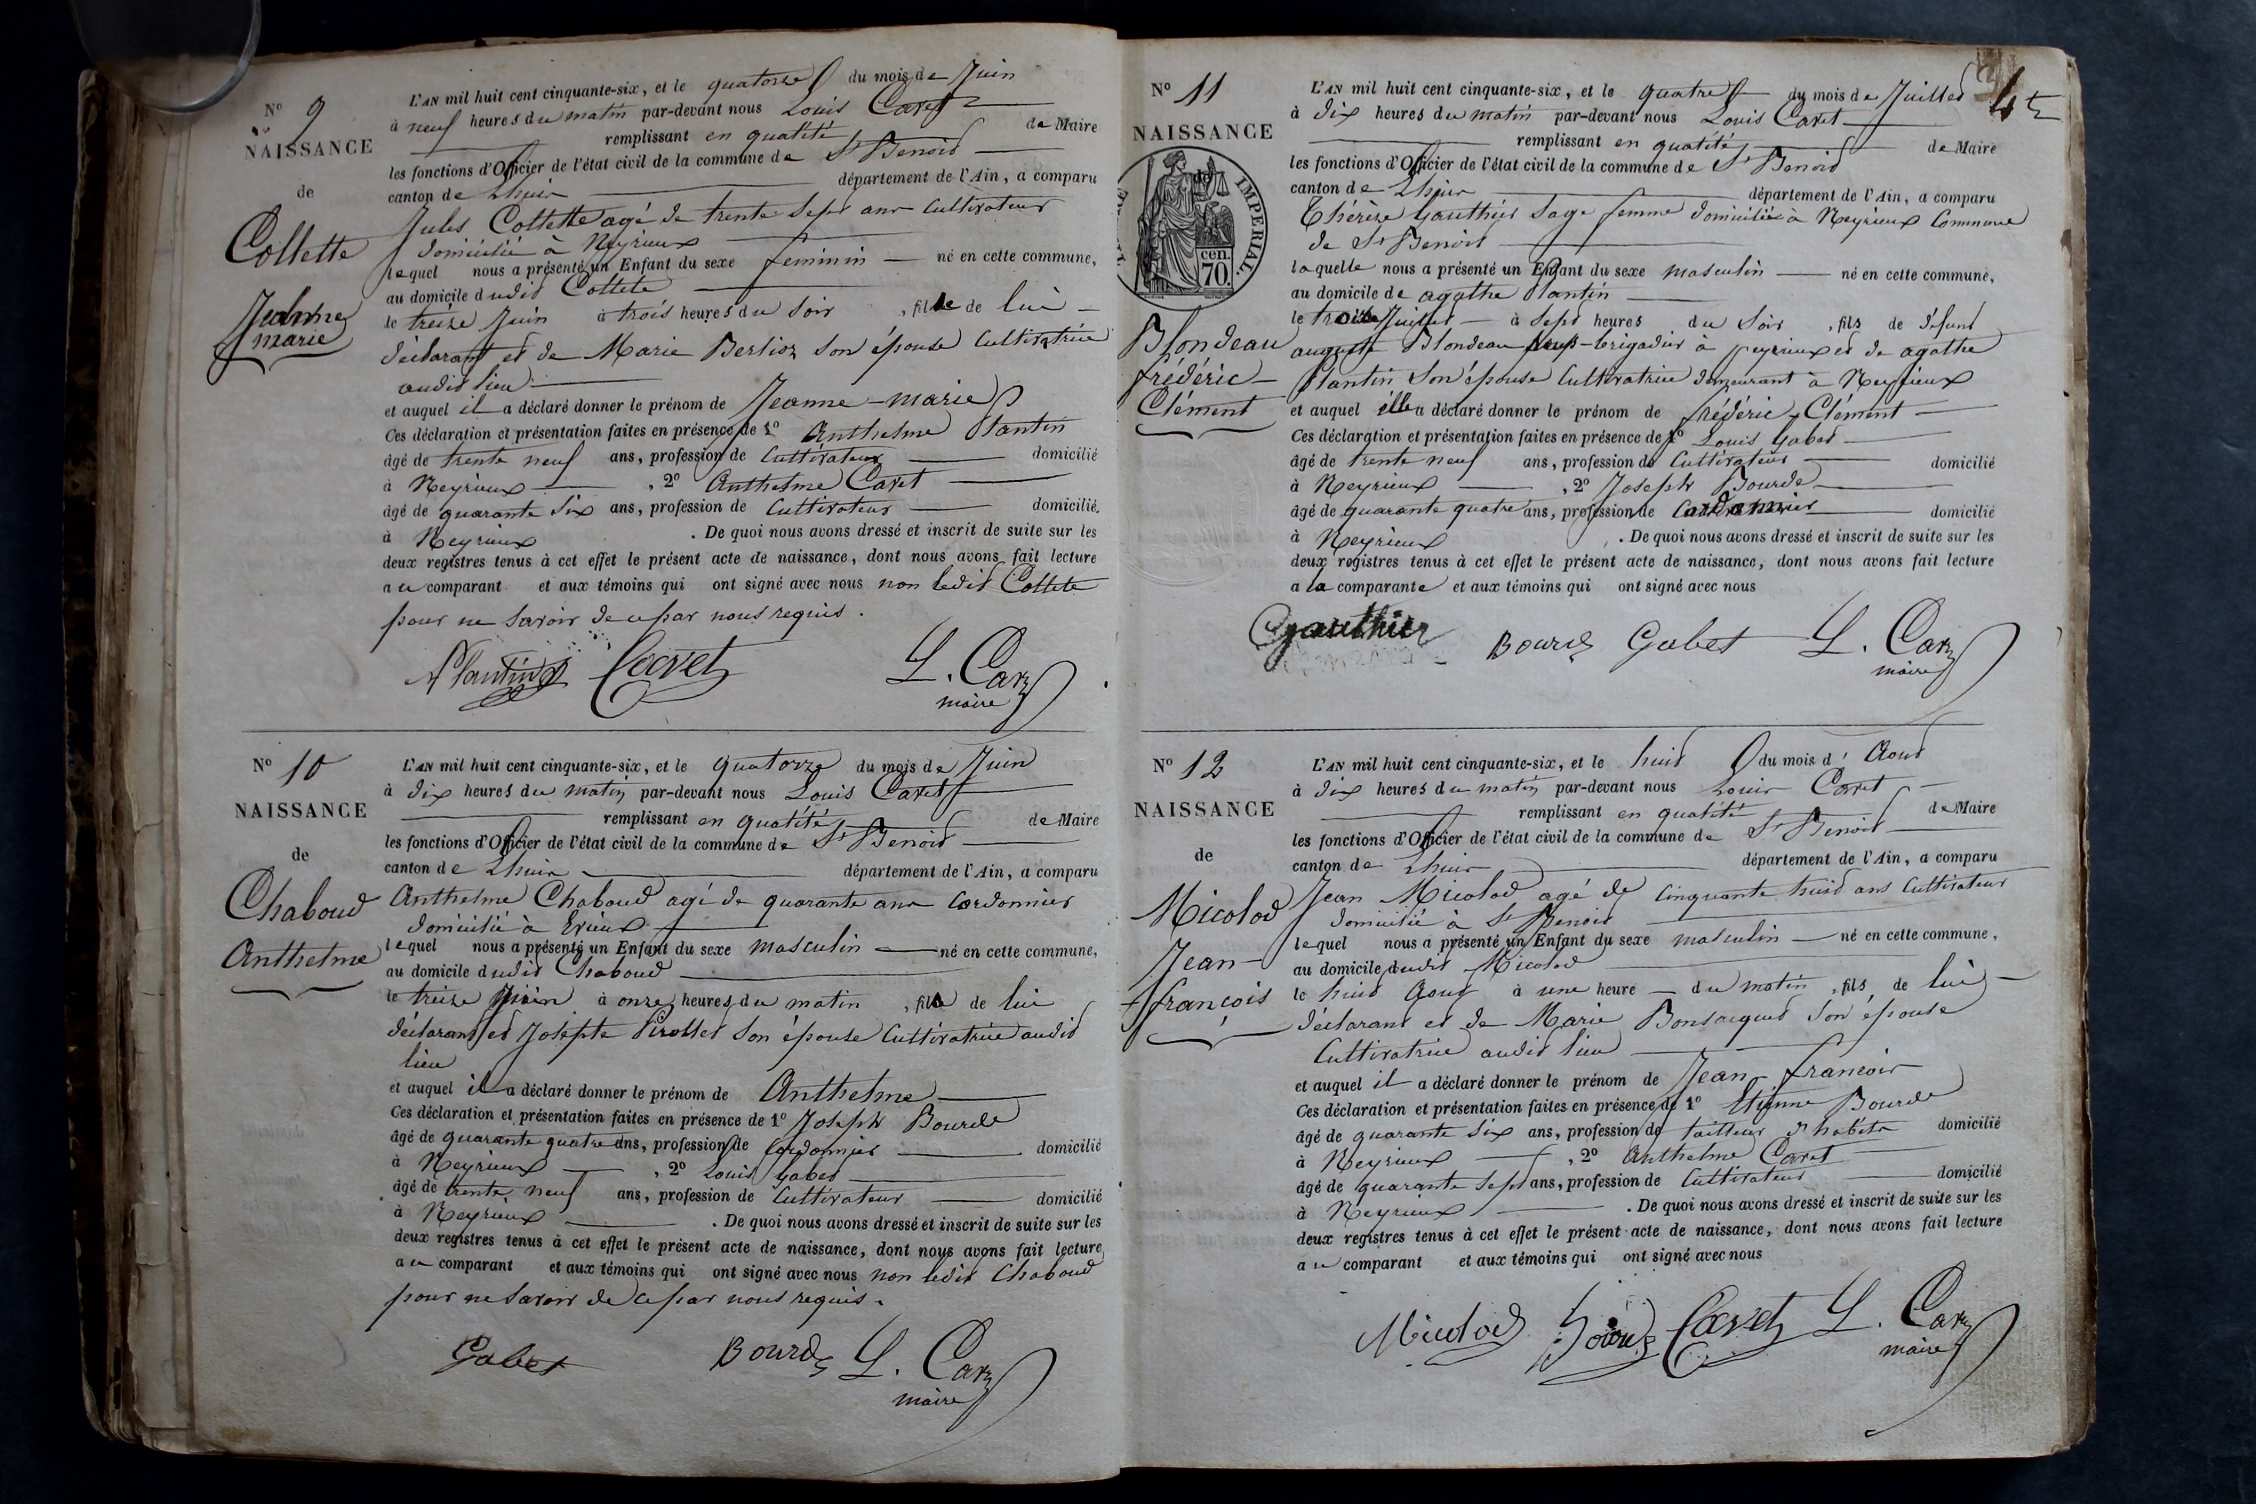 N° 9
NAISSANCE
de
Collette
Jeanne
marie
L'AN mil huit cent cinquante-six, et le quatorze du mois de Juin
à neuf heures du matin par-devant nous Louis Cavet
remplissant en qualité de Maire
les fonctions d'Officier de l'état civil de la commune de St Benoid
canton de Lhuis département de l'Ain, a comparu
Jules Collette agé de trente sept ans Cultivateur
domicilié à Neyrieux
lequel nous a présenté un Enfant du sexe feminin né en cette commune,
au domicile dudit Collete
le treize Juin à trois heures du Soir , fille de lui
déclarant et de Marie Berlioz son épouse Cultivatrice
audit lieu
et auquel il a déclaré donner le prénom de Jeanne-marie
Ces déclaration et présentation faites en présence de 1° Anthelme Plantin
âgé de trente neuf ans, profession de Cultivateur domicilié
à Neyrieux , 2° Anthelme Cavet
âgé de quarante Six ans, profession de Cultivateur domicilié
à Neyrieux . De quoi nous avons dressé et inscrit de suite sur les
deux registres tenus à cet effet le présent acte de naissance, dont nous avons fait lecture
au comparant et aux témoins qui ont signé avec nous non ledit Collete
pour ne Savoir de ce par nous requis.
Plantin Cavet L. Cavet
maire
N° 10
NAISSANCE
de
Chaboud
Anthelme
L'AN mil huit cent cinquante-six, et le quatorze du mois de Juin
à dix heures du matin par-devant nous Louis Cavet
remplissant en qualité de Maire
les fonctions d'Officier de l'état civil de la commune de St Benoid
canton de Lhuis département de l'Ain, a comparu
Anthelme Chaboud agé de quarante ans Cordonnier
domicilié à Evieux
lequel nous a présenté un Enfant du sexe masculin né en cette commune,
au domicile dudit Chaboud
le treize Juin à onze heures du matin , fils de lui
déclarant et Josephte Pirollet son épouse Cultivatrice audit
lieu
et auquel il a déclaré donner le prénom de Anthelme
Ces déclaration et présentation faites en présence de 1° Joseph Bourde
âgé de quarante quatre ans, profession de Cordonnier domicilié
à Neyrieux , 2° Louis Gabet
âgé de trente neuf ans, profession de Cultivateur domicilié
à Neyrieux . De quoi nous avons dressé et inscrit de suite sur les
deux registres tenus à cet effet le présent acte de naissance, dont nous avons fait lecture
au comparant et aux témoins qui ont signé avec nous non ledit Chaboud
pour ne Savoir de ce par nous requis.
Gabet Bourde L. Cavet
maire
N° 11
NAISSANCE
de
IMPERIAL.
70. cen.
Blondeau
frédéric
Clément
L'AN mil huit cent cinquante-six, et le quatre du mois de Juillet
à dix heures du matin par-devant nous Louis Cavet
remplissant en qualité de Maire
les fonctions d'Officier de l'état civil de la commune de St Benoid
canton de Lhuis département de l'Ain, a comparu
Thérèse Gauthier Sage femme domiciliée à Neyrieux Commune
de St Benoit
laquelle nous a présenté un Enfant du sexe masculin né en cette commune,
au domicile de agathe Plantin
le trois Juillet à sept heures du Soir , fils de défunt
auguste Blondeau sous-brigadier à peyrieux et de agathe
Plantin Son épouse Cultivatrice demeurant à Neyrieux
et auquel elle a déclaré donner le prénom de frédéric Clément
Ces déclaration et présentation faites en présence de 1° Louis Gabet
âgé de trente neuf ans, profession de Cultivateur domicilié
à Neyrieux , 2° Joseph Bourde
âgé de quarante quatre ans, profession de Cordonnier domicilié
à Neyrieux . De quoi nous avons dressé et inscrit de suite sur les
deux registres tenus à cet effet le présent acte de naissance, dont nous avons fait lecture
a la comparante et aux témoins qui ont signé avec nous
Gauthier Bourde Gabet L. Cavet
maire
N° 12
NAISSANCE
de
Micolod
Jean
françois
L'AN mil huit cent cinquante-six, et le huit du mois d' Aout
à dix heures du matin par-devant nous Louis Cavet
remplissant en qualité de Maire
les fonctions d'Officier de l'état civil de la commune de St Benoid
canton de Lhuis département de l'Ain, a comparu
Jean Micolod agé de Cinquante huit ans Cultivateur
domicilié à St Benoid
lequel nous a présenté un Enfant du sexe masculin né en cette commune,
au domicile dudit Micolod
le huit Aout à une heure du matin , fils de lui
déclarant et de Marie Bonsacquet Son épouse
Cultivatrice audit lieu
et auquel il a déclaré donner le prénom de Jean francois
Ces déclaration et présentation faites en présence de 1° Etienne Bourde
âgé de quarante six ans, profession de tailleur d'habits domicilié
à Neyrieux , 2° Anthelme Cavet
âgé de quarante Sept ans, profession de Cultivateur domicilié
à Neyrieux . De quoi nous avons dressé et inscrit de suite sur les
deux registres tenus à cet effet le présent acte de naissance, dont nous avons fait lecture
au comparant et aux témoins qui ont signé avec nous
Micolod Cavet L. Cavet
maire